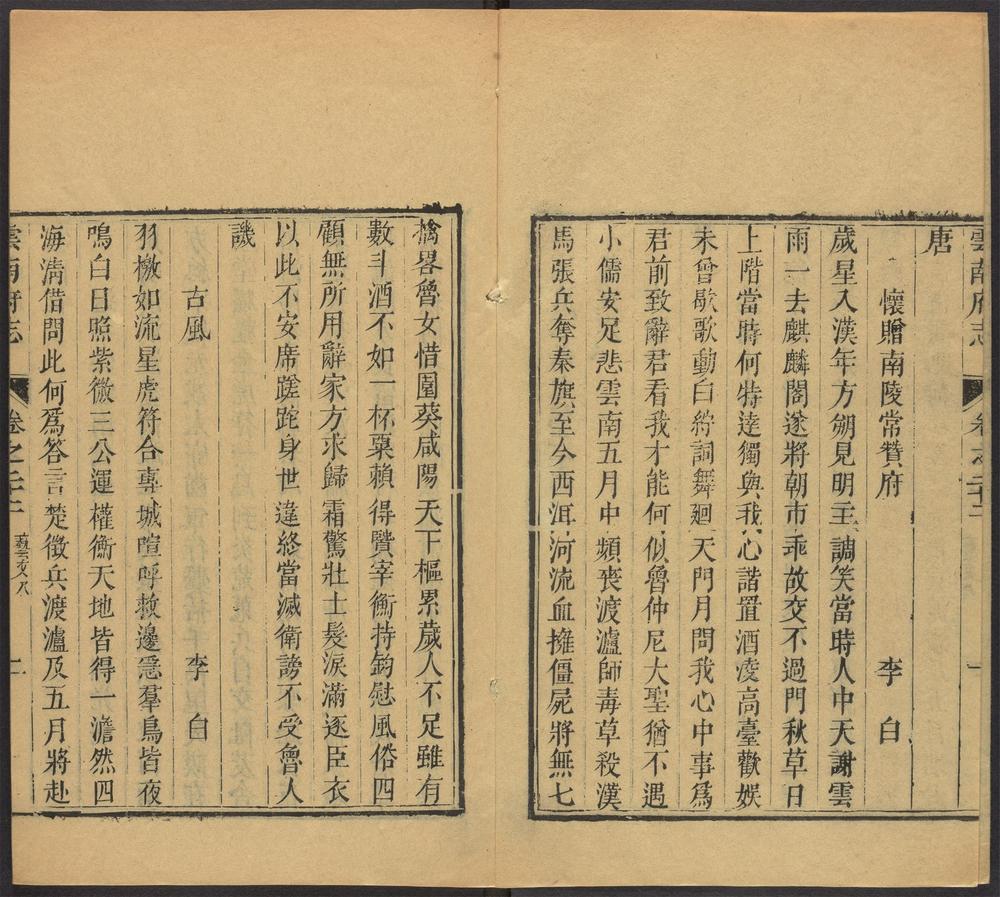 雲南府志 卷之二十二 一
唐
懷贈南陵常贊府 李白
歲星入漢年方朔見明主調笑當時人中天謝雲
雨一去麒麟閣遂將朝市乖故交不過門秋草日
上階當時何特達獨與我心諧置酒凌高臺歡娛
未曾歇歌動白紵詞舞廻天門月問我心中事爲
君前致辭君看我才能何似魯仲尼大聖猶不遇
小儒安足悲雲南五月中頻喪渡瀘師毒草殺漢
馬張兵奪秦旗至今西洱河流血擁僵屍將無七
擒畧魯女惜園葵咸陽天下樞累歲人不足雖有
數斗酒不如一杯粟賴得贒宰衡持鈞慰風俗四
顧無所用辭家方求歸霜驚壯士髮淚滿逐臣衣
以此不安席蹉跎身世違終當滅衛謗不受魯人
譏
古風 李白
羽檄如流星虎符合專城喧呼救邊急羣鳥皆夜
鳴白日照紫微三公運權衡天地皆得一澹然四
海淸借問此何爲答言楚徵兵渡瀘及五月將赴
雲南府志 卷之二十二 藝文八 一